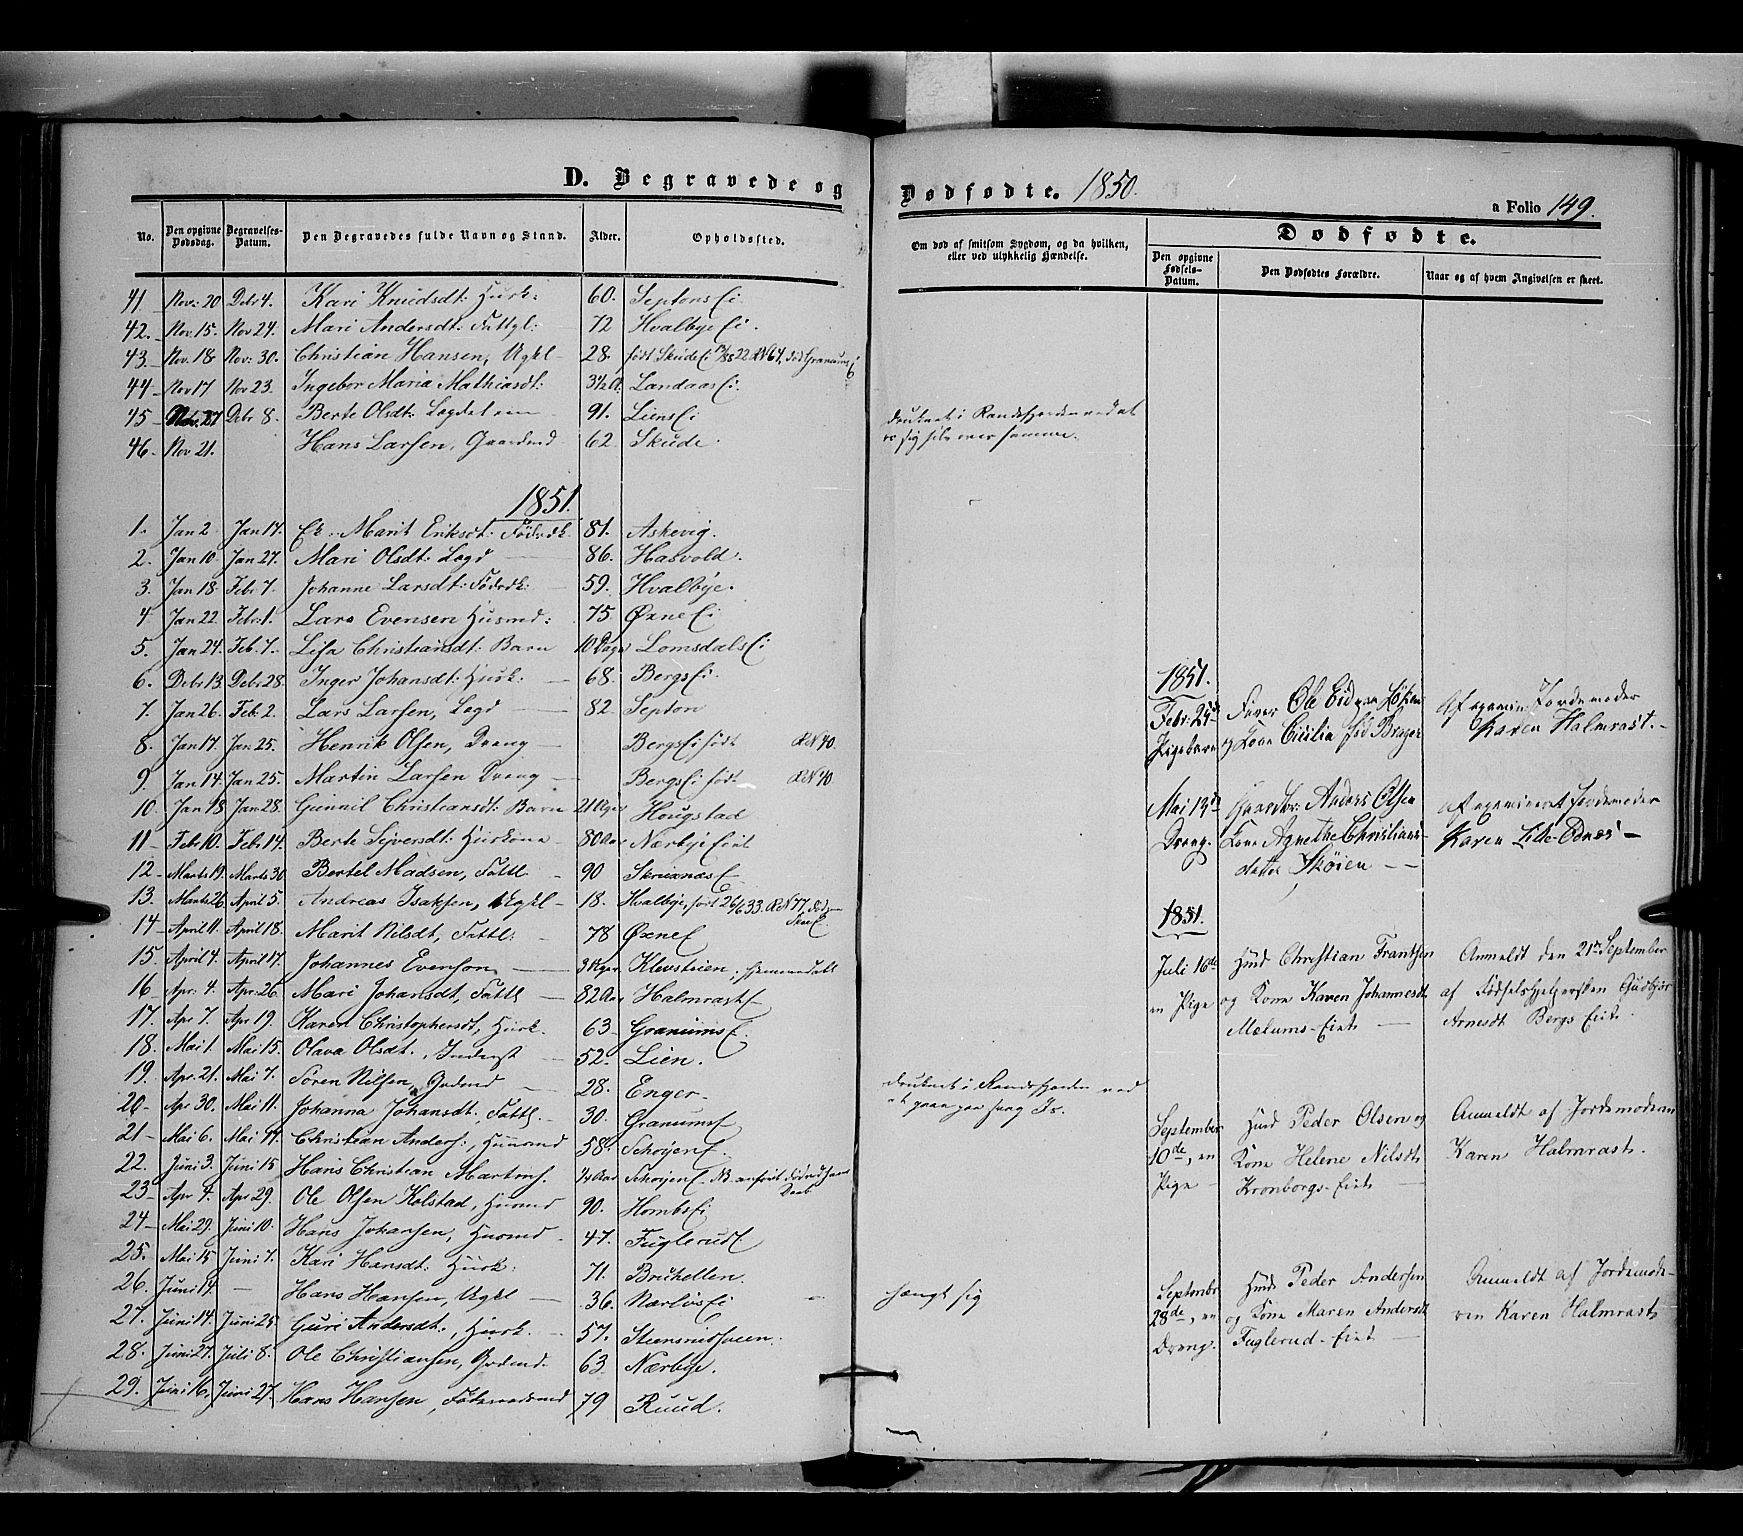 D. Begravede og Dødfødte. 1850.
a Folio 149.
No. Den opgivne Dødsdag. Begravelses-Datum. Den Begravedes fulde Navn og Stand. Alder. Opholdssted.
41. Nov: 20 Debr 4. Kari Knudsdt: Huusk: 60. Septons Ei
42. Nov. 15. Nov 24. Mari Andersdt: Fattgl: 72 Hvalbye Ei.
43. Nov. 18 Nov: 30. Christian Hansen, Ugkl 28. født Skude Ei 22 RN 64, død Granum Ei
44 Nov 17 Nov 23. Ingebor Maria Mathiasdt: 3½ A. Landaas Ei.
45 Nov. 27 Debr 8. Berte Olsdt: Lægdslem 91. Liens Ei
46 Nov 21. Hans Larsen, Gaardmd 62. Skude.
1851.
1. Jan 2 Jan 17. Marit Eriksdt: Føderdk. 81. Askevig.
2. Jan 10. Jan 27. Mari Olsdt: Lægd 86. Hasvold.
3. Jan 18. Feb: 7. Johanne Larsdt: Føderk: 59. Hvalbÿe.
4 Jan 22 Febr: 1. Lars Evensen Husmd: 75. Øxne Ei
5. Jan 24. Feb. 7. Lisa Christiansdt: Barn 10 Dage Lomsdals Ei
6. Debr 13. Debr 28. Inger Johansdt: Huusk: 68. Bergs Ei.
7. Jan 26. Feb: 2. Lars Larsen, Lægd 82. Septon
8. Jan 17. Jan 25. Henrik Olsen, Dreng Bergs Ei født RN 40.
9. Jan 14. Jan 25. Martin Larsen Dreng Bergs Ei født RN 40.
10. Jan 18 Jan 28. Gunnil Christiansdt: Barn 21 Uger Hougstad
11 Feb 10. Feb. 14. Berte Syversdt: Huuskone 80 Aar Nærbye Eiet
12 Marts 19. Marts 30. Bertel Madsen, Fattl. 90 Skrianæs E
13. Marts 26 April 5. Andreas Isaksen, Ugkl 18. Hvalbye, født 26/6 33. RN 77, død Skøi E.
14 April 11. April 18. Marit Nilsdt, Fattl: 78 Øxne E
15. April 4. April 17. Johannes Evenson 3 Uger Klevsteien, hjemmedøbt
16 Apr. 4. Apr. 26. Mari Johansdt, Fattl 82 Aar Halmrast E
17. Apr 7. Apr 19. Karen Christophersdt, Huusk. 63 Granums E.
18. Mai 1. Mai 15. Olava Olsdt., Inderst 52. Lien.
19. Apr. 21. Mai 7. Søren Nilsen, Grdmd 28. Enger
20 Apr 30. Mai 11. Johanna Johansdt, Fattl. 30. Granums E
21 Mai 6. Mai 17. Christian Anders:, Huusmd 58. Schøyen E.
22. Juni 3. Juni 15 Hans Christian Martins. 14 Aar Schøyen E. NB anført Daab
23 Apr 4. Apr 29. Ole Olsen Kolstad, Huusmd 90. Hombs Ei
24 Mai 29. Juni 10. Hans Johansen, Husmd 47. Fuglerud E
25. Mai 15 Juni 7. Kari Hansdt: Huusk: 71. Bruhellen.
26. Juni 14. Hans Hansen, Ugkl 36. Nærlus Ei
27. Juni 14. Juni 25. Guri Andersdt:, Huusk. 57. Steensrudsveen.
28. Juni 27. Juli 8. Ole Christiansen, Grdmd. 63. Nærbye.
29. Juni 16. Juni 27. Hans Hansen, Føderaadsmd 79 Ruud.
Om død af smitsom Sygdom, og da hvilken, eller ved ulykkelig Hændelse.
Dødfødte.
Den opgivne Fødsels-Datum. Den Dødfødtes Forældre. Naar og af hvem Angivelsen er skeet.
druknet i Randsfjorden ved at
ro sig selv over samme.
druknet i Randsfjorden ved
at gaae paa svag Is.
hængt sig
1851.
Febr: 24de Pigebarn
Farver Ole Eid paa Høkens
og Kone Cicilia fød Brager
Af examin. Jordemoder
Karen Halmrast.
Mai 13de Dreng.
Gaardbr: Anders Olsen
Kone Agnethe Christians-
datter Skøien
af examineret Jordemoder
Karen Lille-Odnæs
1851.
Juli 16de en Pige
Husd Christian Frantsen
og Kone Karen Johannesdt
Melums-Eiet
Anmeldt den 21de September
af Fødselshjelpersken Gudbjør
Arnesdt Bergs Eiet.
September 10de, en Pige
Husd Peder Olsen og
Kone Helene Nilsdt
Kronborgs-Eiet
Anmeldt af Jordemoderen
Karen Halmrast.
Septembr 28de, en Dreng.
Husd Peder Andersen
og Kone Maren Andersdt
Fuglerud-Eiet
Anmeldt af Jordemode-
ren Karen Halmrast